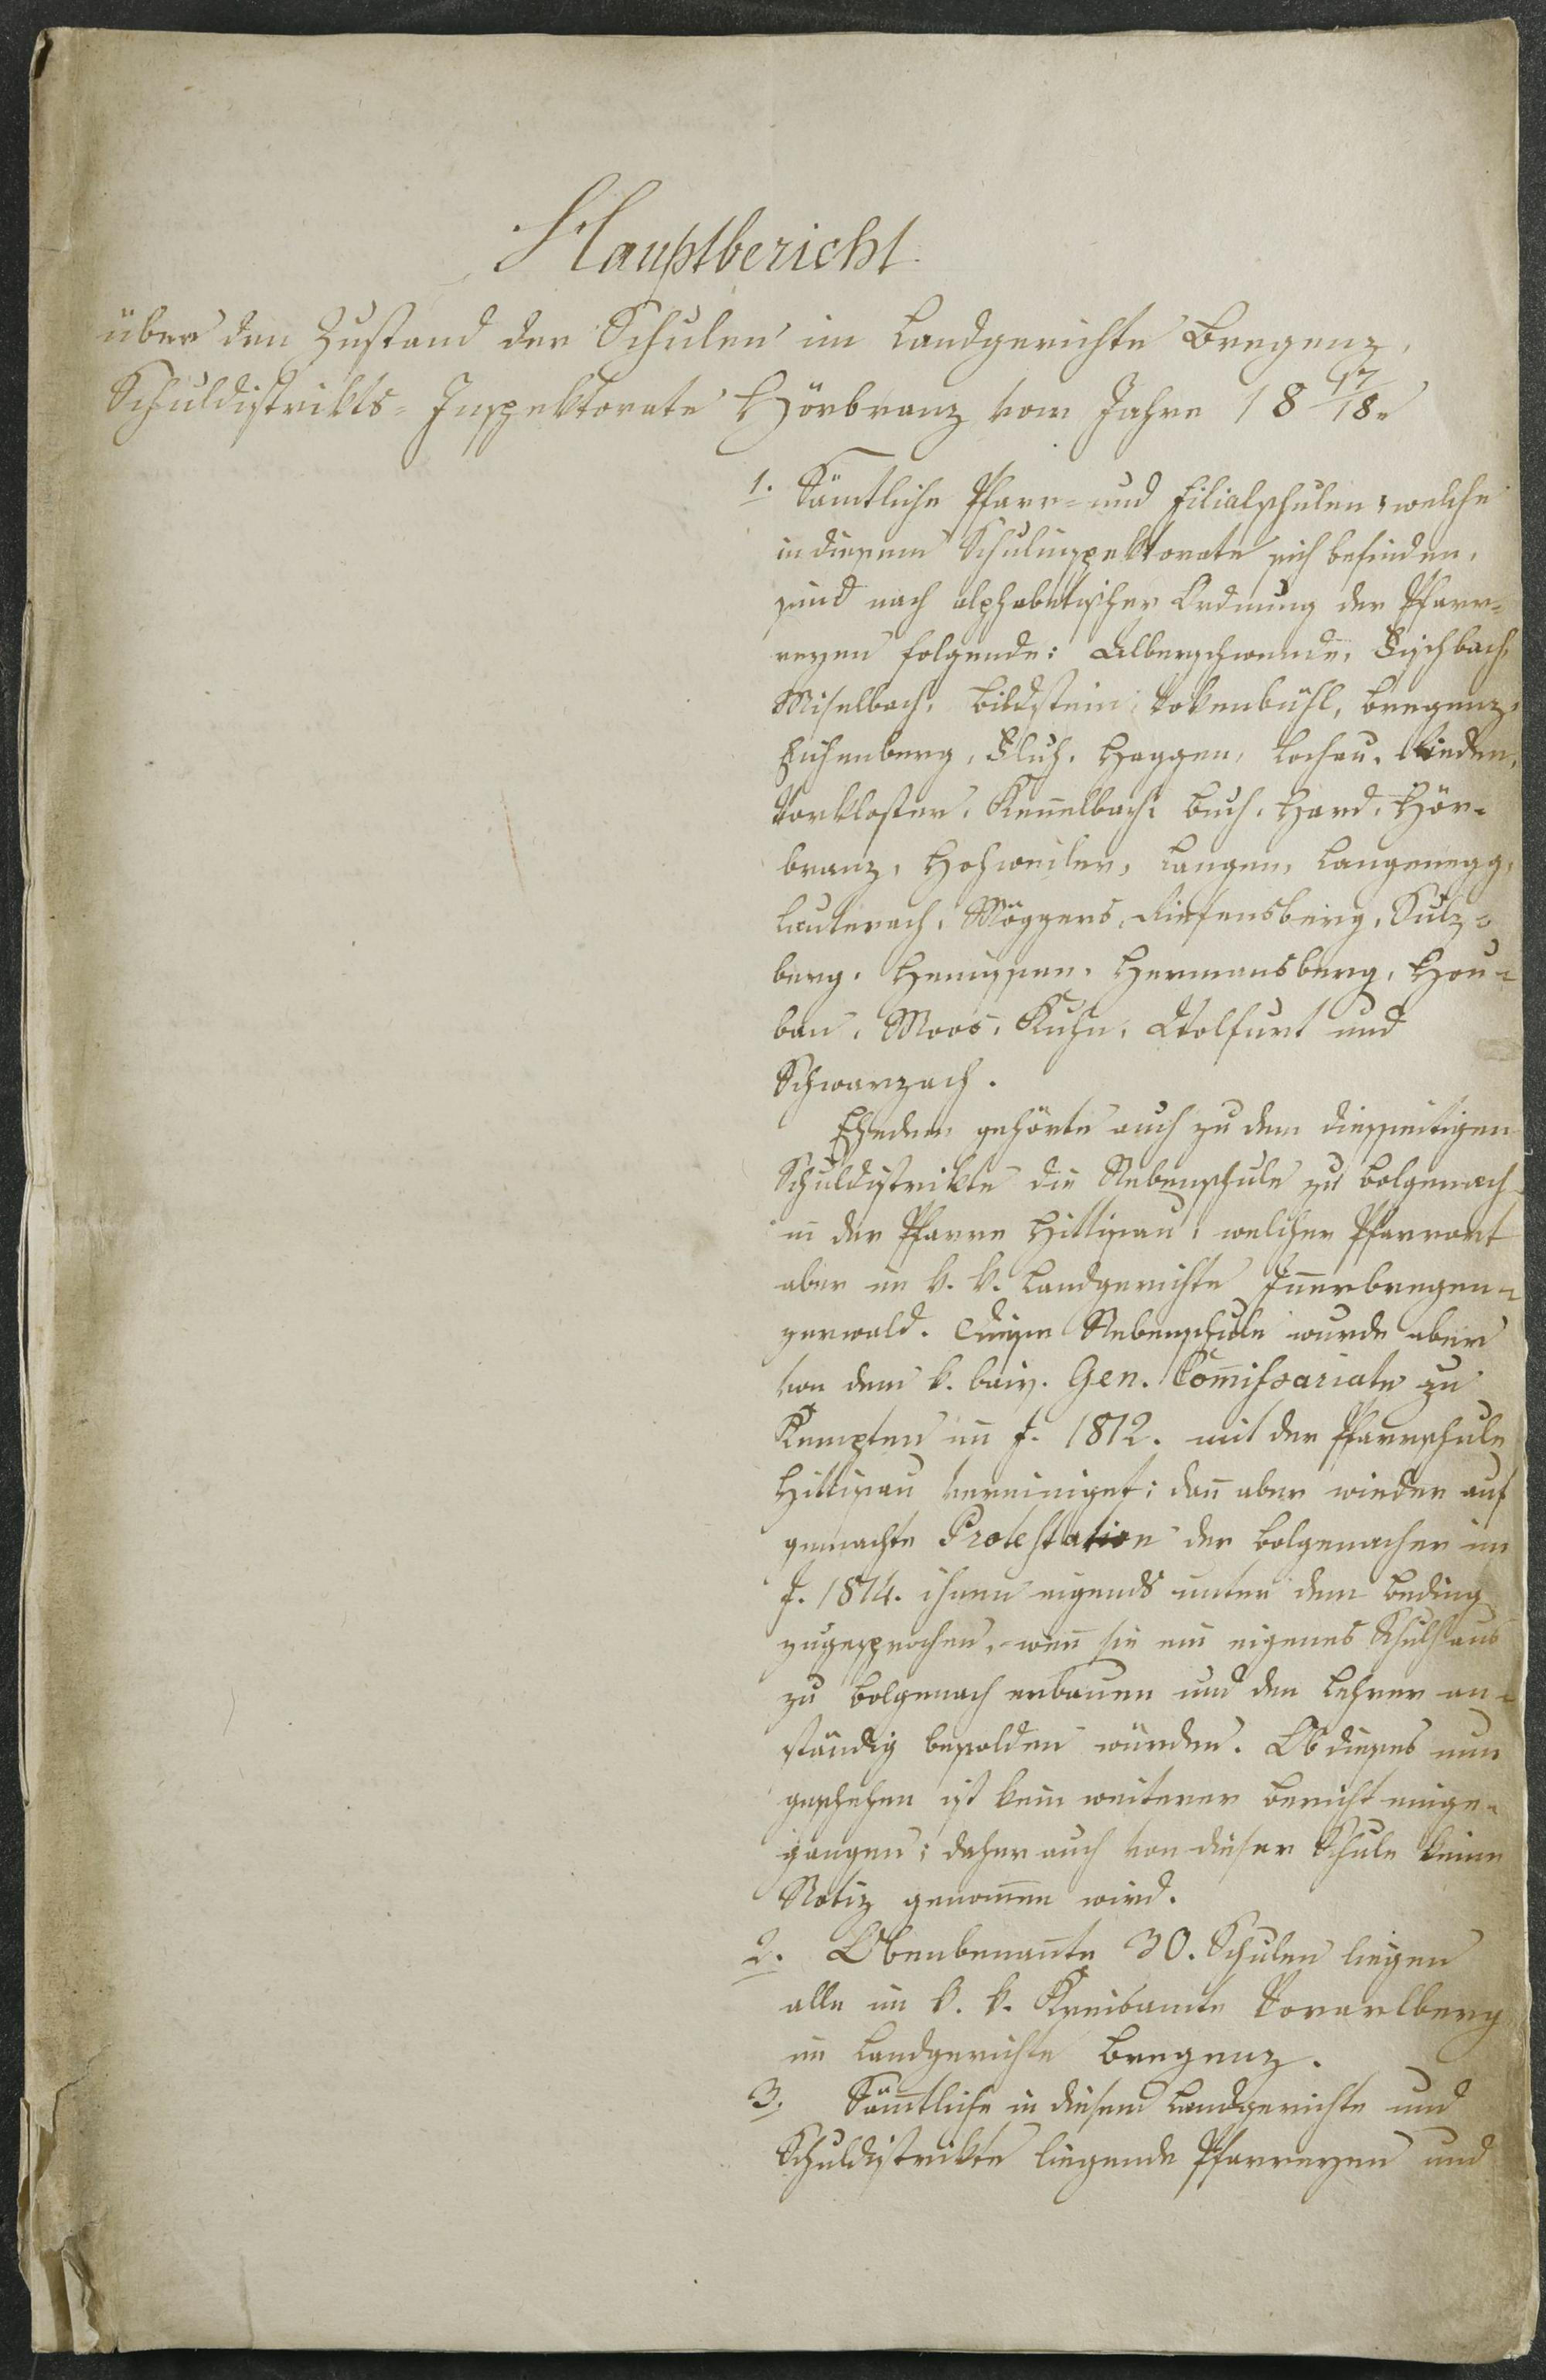 Hauptbericht
über den Zustand der Schulen im Landgerichte Bregenz,
Schuldistrikts-Inspektorate Hörbranz vom Jahre 18 17/18.
1. Sämtliche Pfarr- und Filialschulen, welche
in diesem Schulinspektorate sich befinden,
sind nach alphabetischer Ordnung der Pfarr-
reyen folgende: Alberschwende, Fischbach,
Müselbach, Bildstein, Bregenz,
Eichenberg, Fluh, Haggen, Lochau, Rieden,
Vorkloster, Kennelbach, Buch, Hard, Hör-
branz, Hohweiler, Langen, Langenegg,
Lauterach, Möggers, Riefensberg, Sulz-
berg, Hermansberg,
Moos, Wolfurt und
Schwarzach.
Ehedem gehörte auch zu dem diesseitigen
Schuldistrikte die Nebenschule zu Bolgenach
in der Pfarre Hittisau, welcher Pfarrort
aber im k. k. Landgerichte Innerbregen-
zerwald. Diese Nebenschule wurde aber
von dem k. baier. Gen. Com̄issariate zu
Kempten im J. 1812. mit der Pfarrschule
Hittisau vereiniget; dan̄ aber wieder auf
gemachte Protestation der Bolgenacher im
J. 1814. ihnen eigends unter dem Beding
zugesprochen, wen̄ sie ein eigenes Schulhaus
zu Bolgenach erbauen und den Lehrer an-
ständig besolden würden. Ob dieses nun
geschehen ist kein weiterer Bericht einge-
gangen; daher auch von dieser Schule keine
Notiz genom̄en wird.
2. Obenbenan̄te 30. Schulen liegen
alle im k. k. Kreisamte Vorarlberg
im Landgerichte Bregenz.
3. Säm̄tliche in diesem Landgerichte und
Schuldistrikte liegende Pfarreyen und